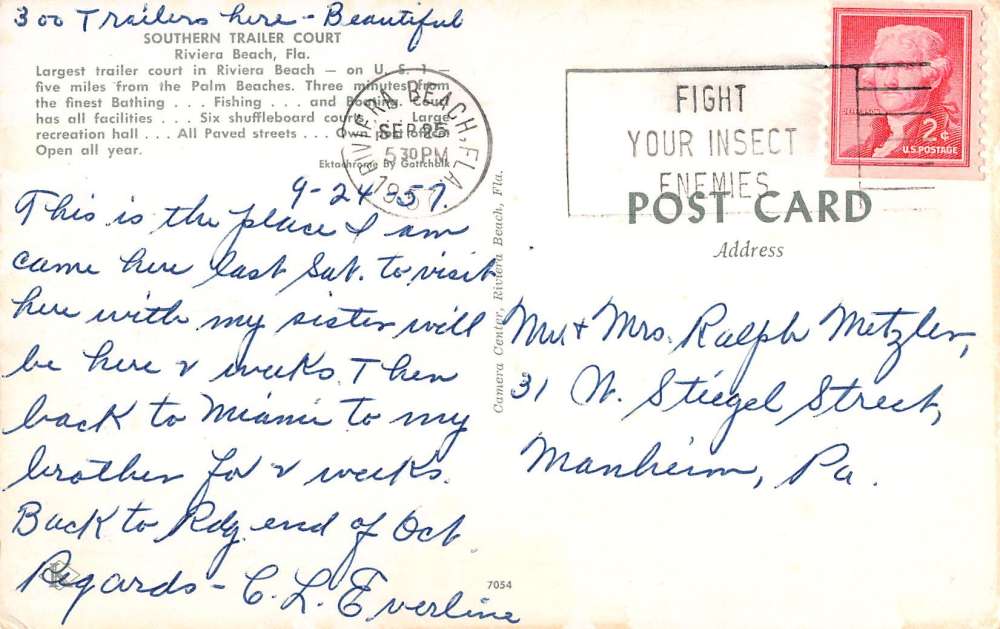 300 Trailers here - Beautiful
SOUTHERN TRAILER COURT
Riviera Beach, Fla.
Largest trailer court in Riviera Beach — on U. S. 1 —
five miles from the Palm Beaches. Three minutes from
the finest Bathing . . . Fishing . . . and Boating. Court
has all facilities . . . Six shuffleboard courts . . . Large
recreation hall . . . All Paved streets . . . Own post office.
Open all year.
Ektachrome By Gottchalk
RIVIERA BEACH, FLA.
SEP 25
5 30 PM
1957
FIGHT
YOUR INSECT
ENEMIES
2¢
U.S. POSTAGE
POST CARD
Address
9-24-57.
This is the place I am
came here last Sat. to visit
here with my sister will
be here 2 weeks. Then
back to Miami to my
brother for 2 weeks.
Back to Rdg. end of Oct
Regards - C. L. Everline
Camera Center, Riviera Beach, Fla.
Mr + Mrs. Ralph Metzler,
31 W. Stiegel Street,
Manheim, Pa.
K
7054